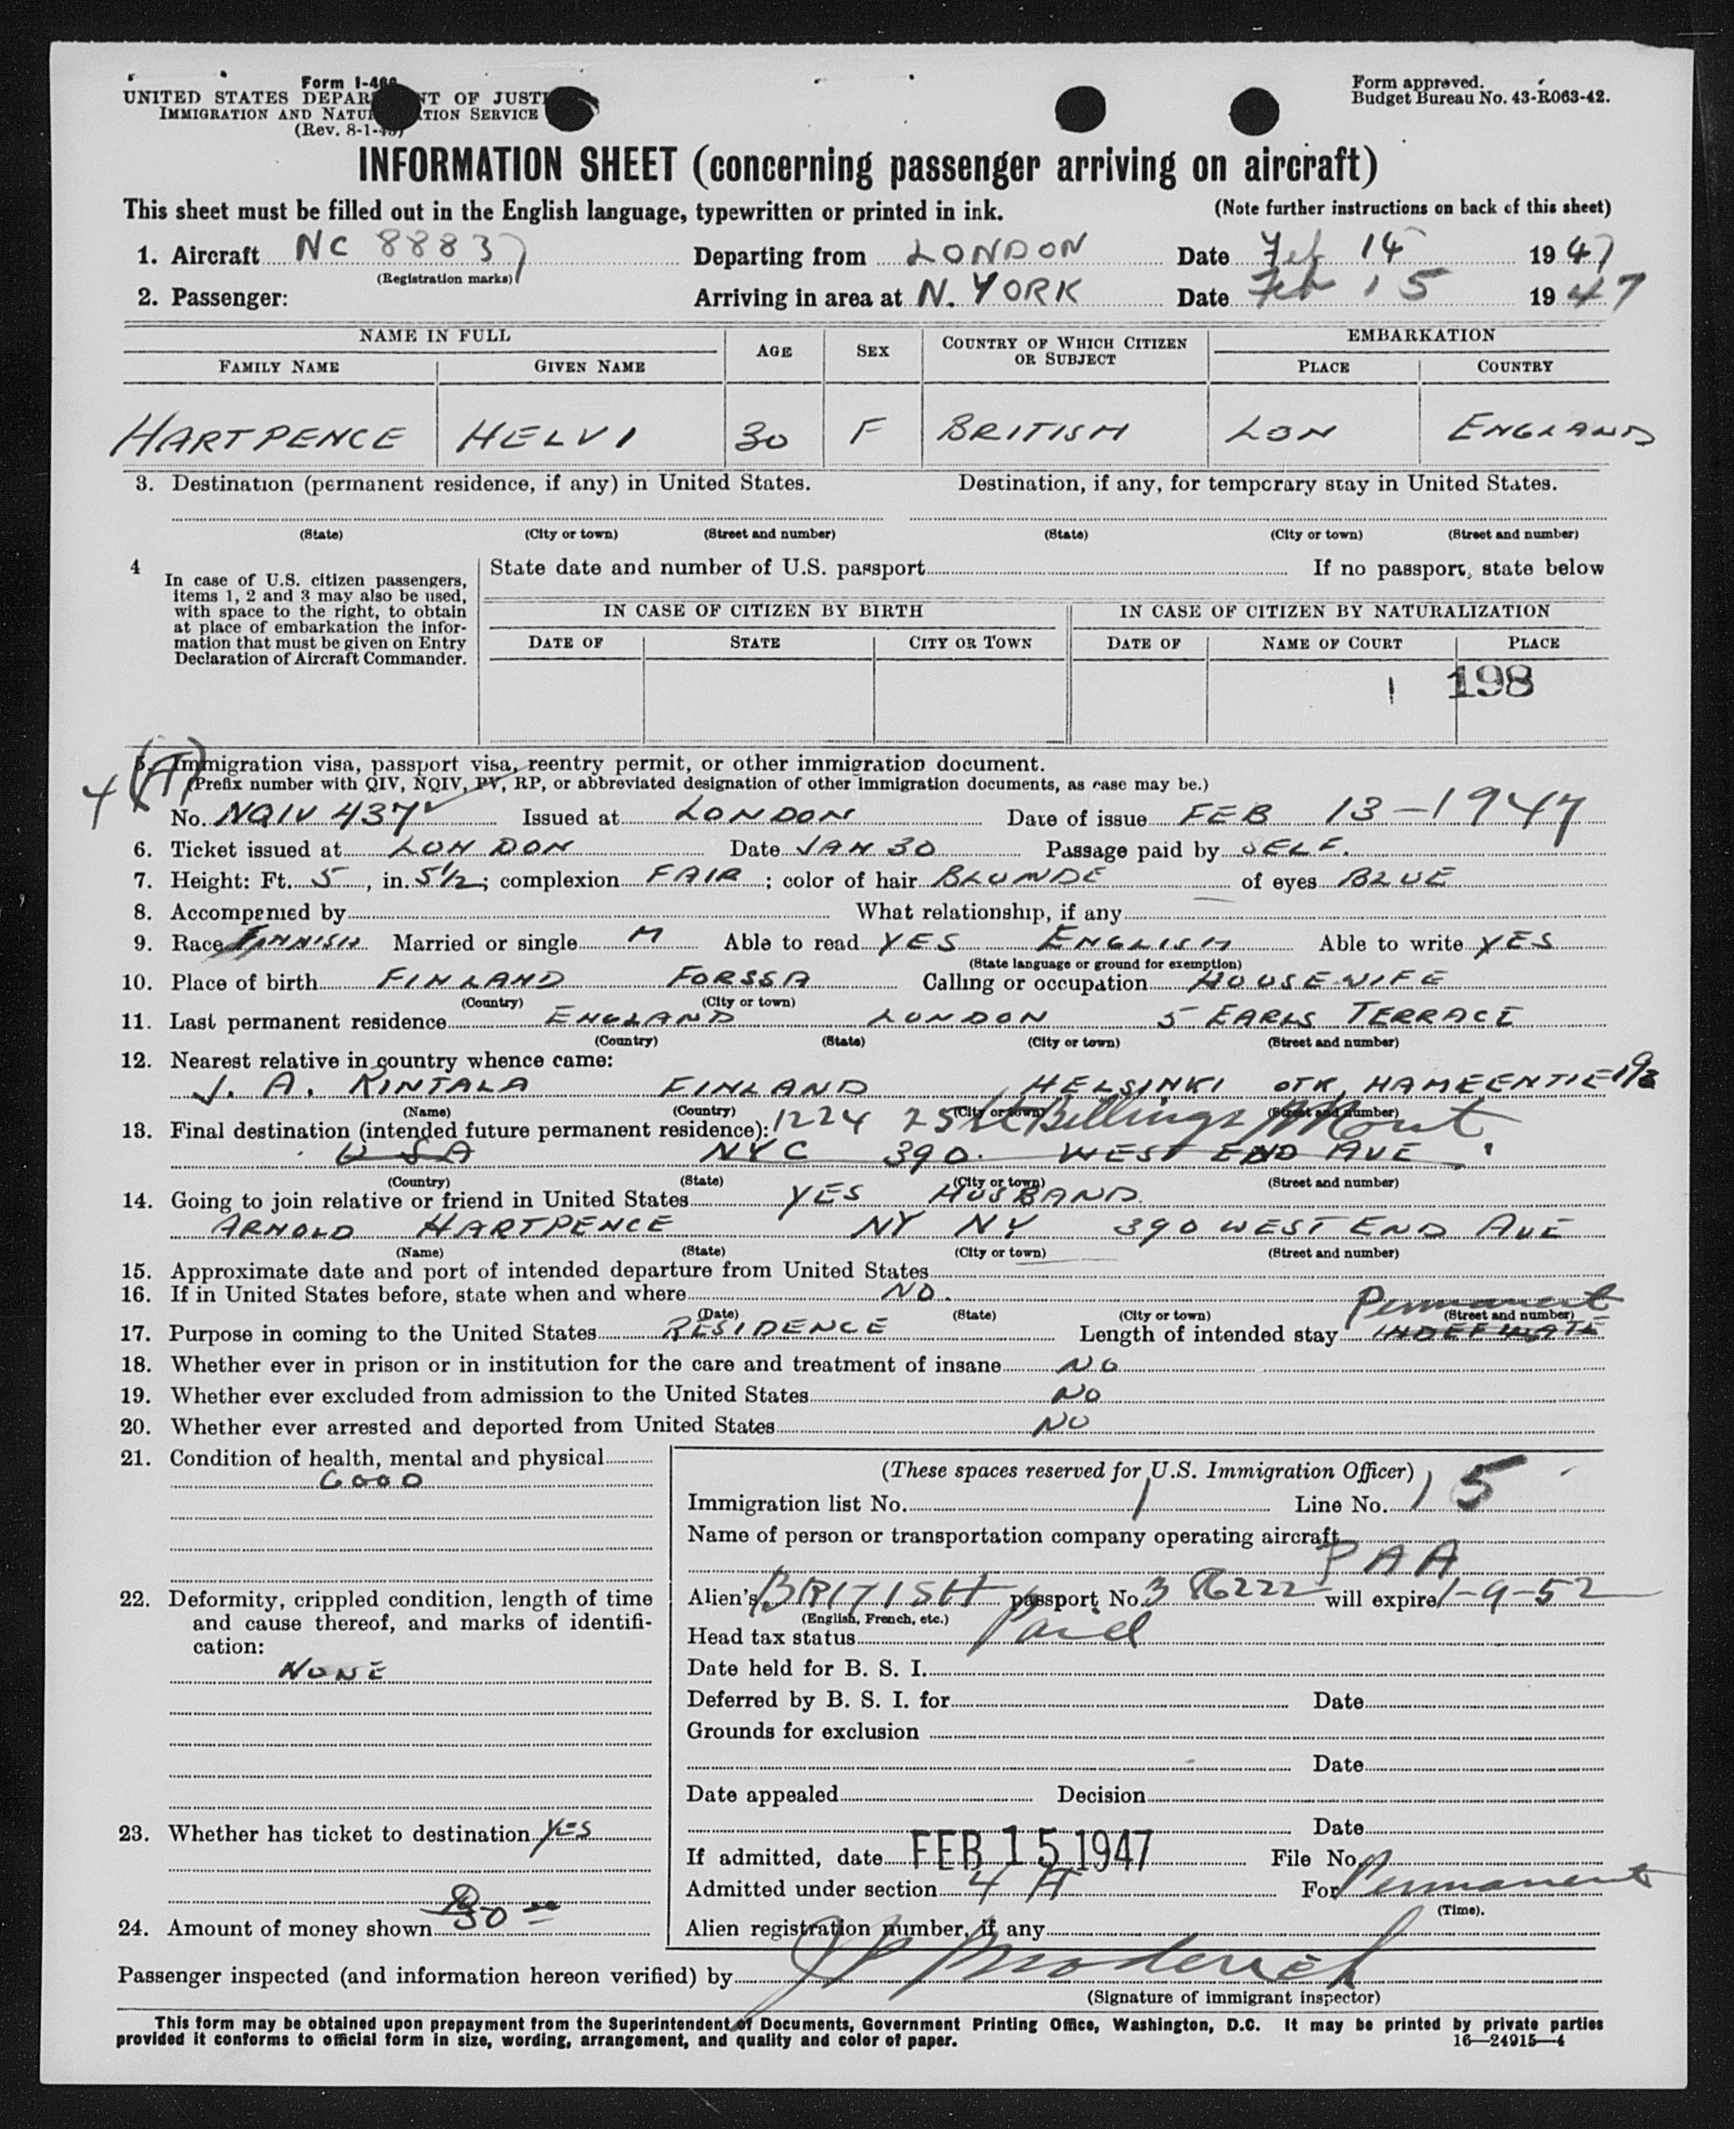 Form I-466
UNITED STATES DEPARTMENT OF JUSTICE
IMMIGRATION AND NATURALIZATION SERVICE
(Rev. 8-1-45)
Form approved.
Budget Bureau No. 43-R063-42.
INFORMATION SHEET (concerning passenger arriving on aircraft)
This sheet must be filled out in the English language, typewritten or printed in ink. (Note further instructions on back of this sheet)
1. Aircraft NC 88837 Departing from LONDON Date Feb 14 1947
(Registration marks)
2. Passenger: Arriving in area at N. YORK Date Feb 15 1947
NAME IN FULL AGE SEX COUNTRY OF WHICH CITIZEN OR SUBJECT EMBARKATION
FAMILY NAME GIVEN NAME PLACE COUNTRY
HARTPENCE HELVI 30 F BRITISH LON ENGLAND
3. Destination (permanent residence, if any) in United States. Destination, if any, for temporary stay in United States.
(State) (City or town) (Street and number) (State) (City or town) (Street and number)
4 In case of U.S. citizen passengers, items 1, 2 and 3 may also be used, with space to the right, to obtain at place of embarkation the information that must be given on Entry Declaration of Aircraft Commander.
State date and number of U.S. passport If no passport, state below
IN CASE OF CITIZEN BY BIRTH IN CASE OF CITIZEN BY NATURALIZATION
DATE OF STATE CITY OR TOWN DATE OF NAME OF COURT PLACE
198
4 (A)
5. Immigration visa, passport visa, reentry permit, or other immigration document.
(Prefix number with QIV, NQIV, PV, RP, or abbreviated designation of other immigration documents, as case may be.)
No. NQIV 437 Issued at LONDON Date of issue FEB 13-1947
6. Ticket issued at LONDON Date JAN 30 Passage paid by SELF.
7. Height: Ft. 5, in. 5 1/2; complexion FAIR; color of hair BLONDE of eyes BLUE
8. Accompanied by What relationship, if any
9. Race FINNISH Married or single M Able to read YES ENGLISH Able to write YES
(State language or ground for exemption)
10. Place of birth FINLAND FORSSA Calling or occupation HOUSEWIFE
(Country) (City or town)
11. Last permanent residence ENGLAND LONDON 5 EARLS TERRACE
(Country) (State) (City or town) (Street and number)
12. Nearest relative in country whence came:
J. A. RINTALA FINLAND HELSINKI OTK, HAMEENTIE 19/3
(Name) (Country) (City or town) (Street and number)
13. Final destination (intended future permanent residence): 1224 25 St Billings Mont
USA NYC 390 WEST END AVE.
(Country) (State) (City or town) (Street and number)
14. Going to join relative or friend in United States YES HUSBAND
ARNOLD HARTPENCE NY NY 390 WEST END AVE
(Name) (State) (City or town) (Street and number)
15. Approximate date and port of intended departure from United States
16. If in United States before, state when and where NO.
(Date) (State) (City or town) (Street and number)
Permanent
17. Purpose in coming to the United States RESIDENCE Length of intended stay INDEFINATE
18. Whether ever in prison or in institution for the care and treatment of insane NO
19. Whether ever excluded from admission to the United States NO
20. Whether ever arrested and deported from United States NO
21. Condition of health, mental and physical
GOOD
22. Deformity, crippled condition, length of time and cause thereof, and marks of identification:
NONE
23. Whether has ticket to destination YES
24. Amount of money shown $50 00
(These spaces reserved for U.S. Immigration Officer)
Immigration list No. 1 Line No. 15
Name of person or transportation company operating aircraft
PAA
Alien's BRITISH passport No. 386222 will expire 1-9-52
(English, French, etc.)
Head tax status Paid
Date held for B. S. I.
Deferred by B. S. I. for Date
Grounds for exclusion
Date
Date appealed Decision
Date
If admitted, date FEB 15 1947 File No.
Admitted under section 4 A For Permanent
(Time).
Alien registration number, if any
Passenger inspected (and information hereon verified) by
(Signature of immigrant inspector)
This form may be obtained upon prepayment from the Superintendent of Documents, Government Printing Office, Washington, D.C. It may be printed by private parties
provided it conforms to official form in size, wording, arrangement, and quality and color of paper. 16—24915—4